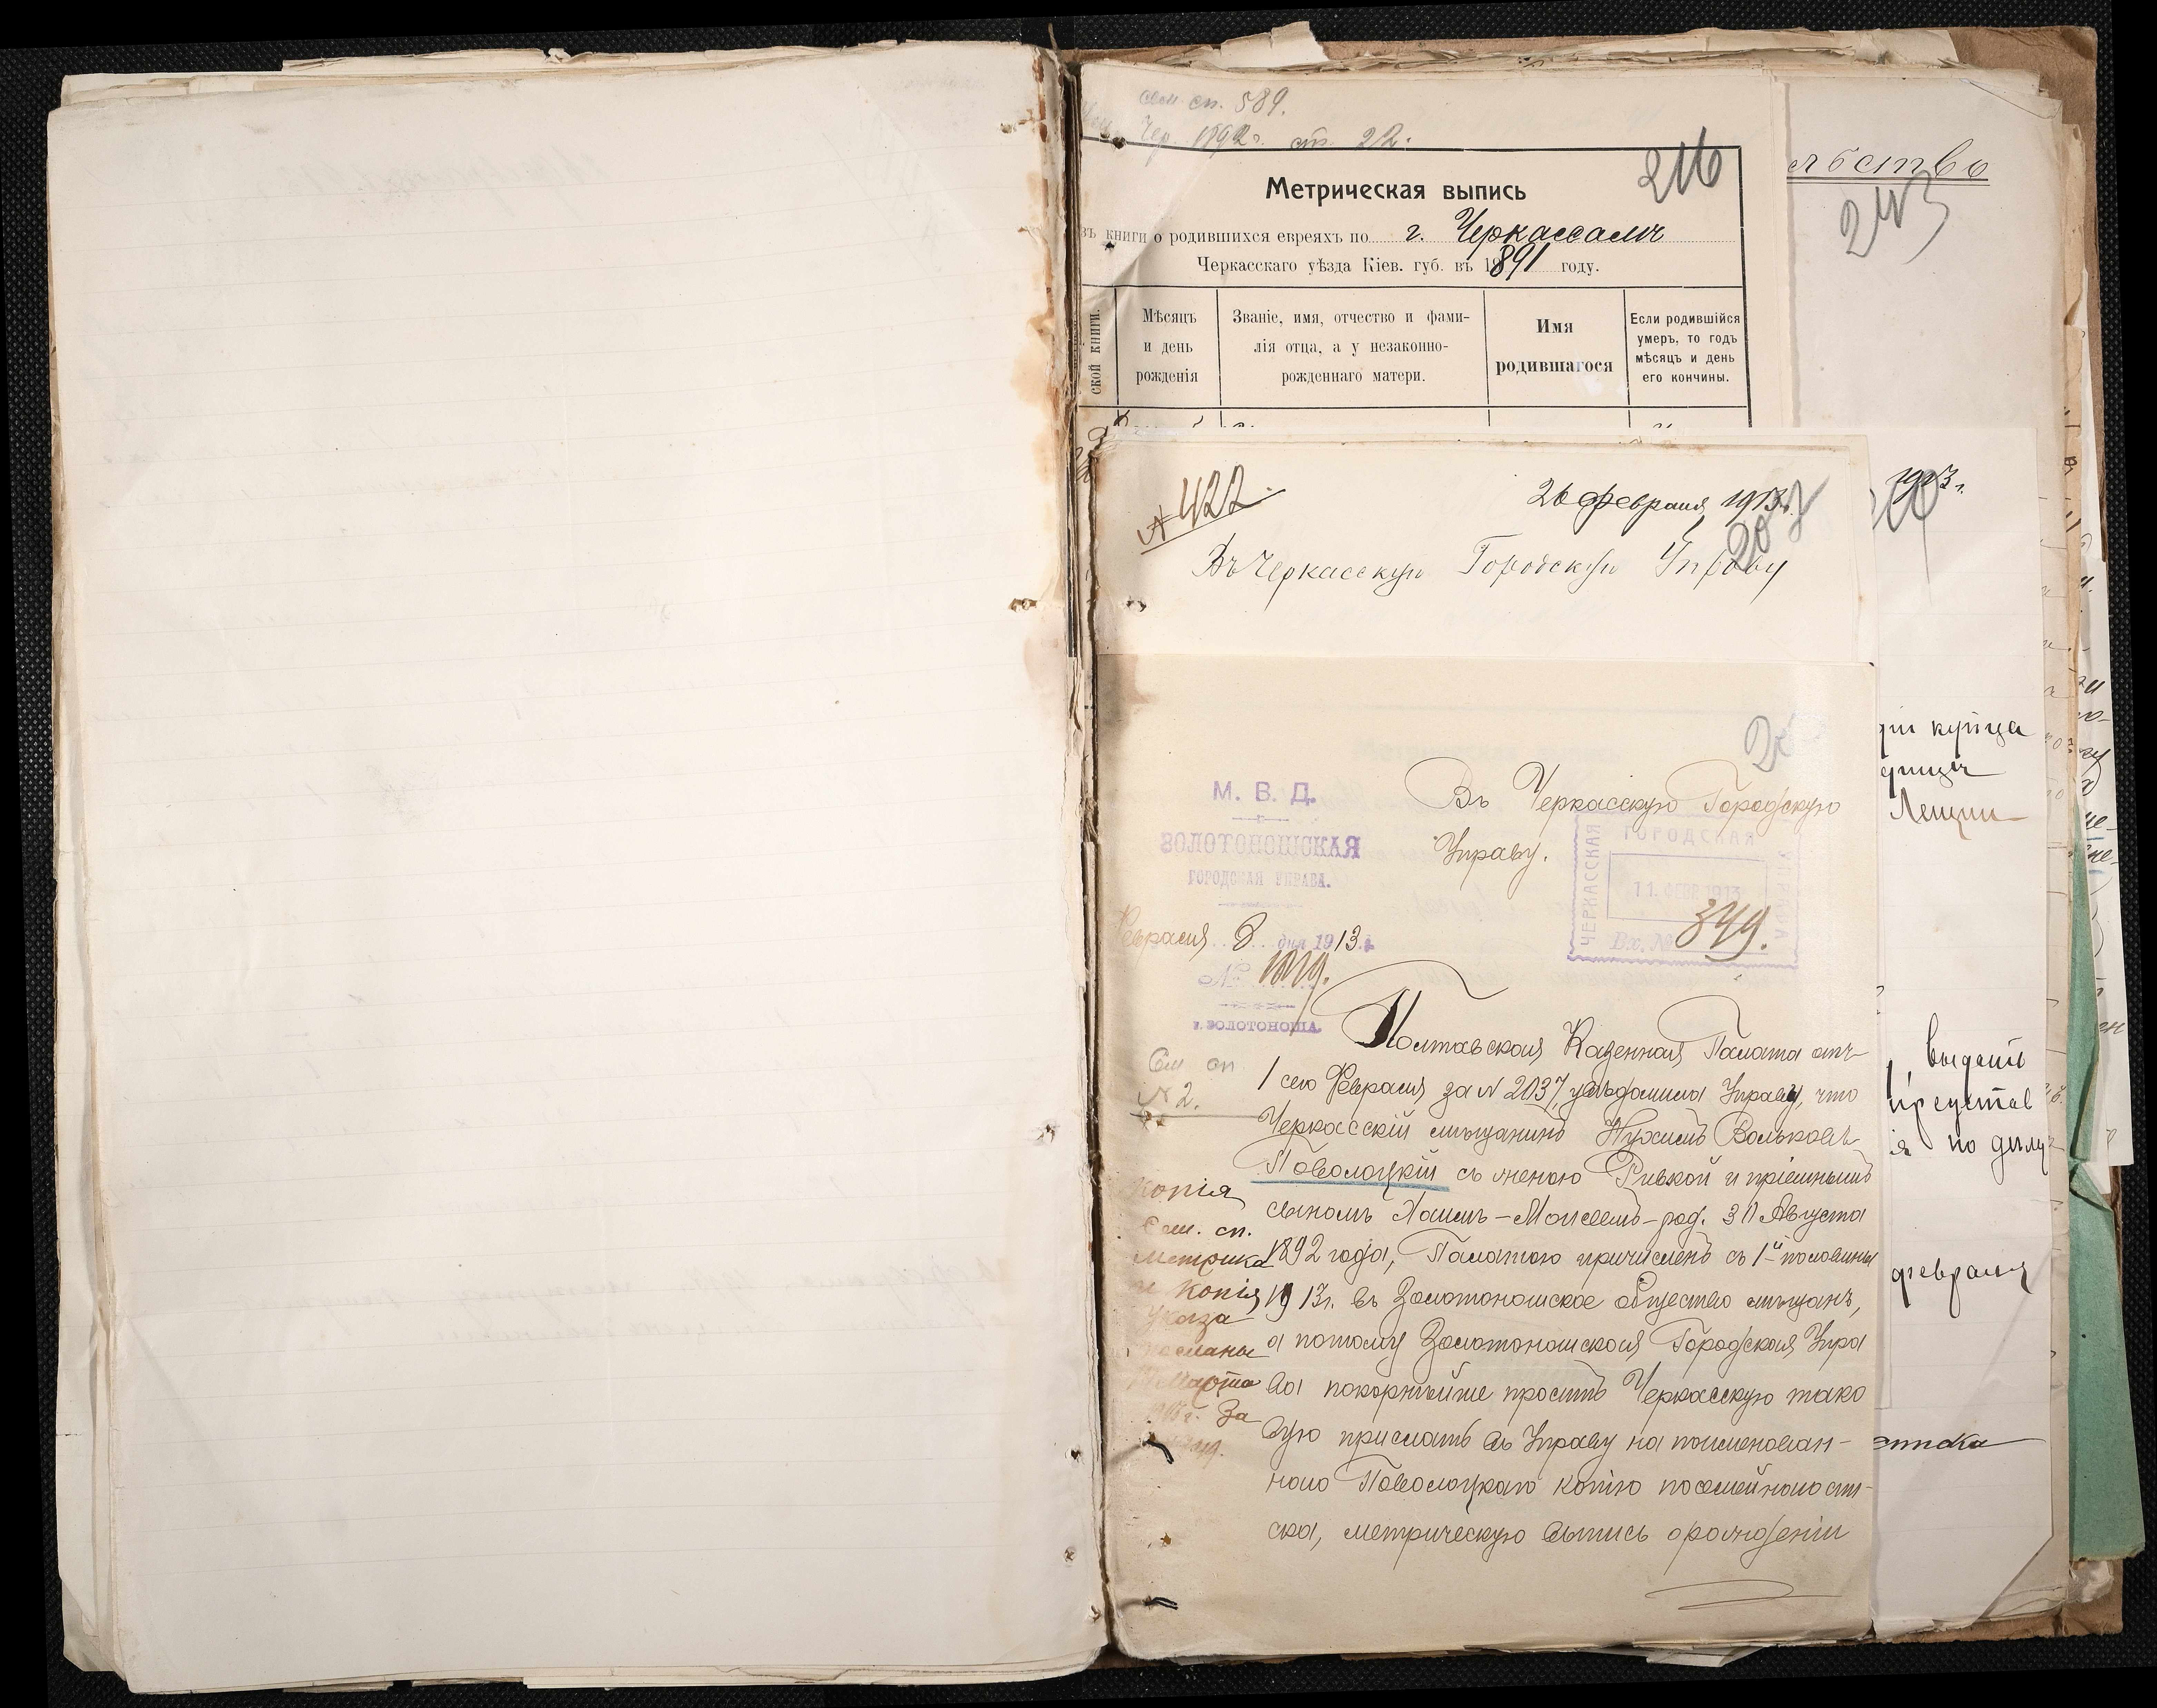 сем. сп. 589.
Чер. 1892 г. ст. 22.
216
Метрическая выпись
въ книги о родившихся евреяхъ по г. Черкассамъ
Черкасскаго уѣзда Кіев. губ. въ 1891 году.
ской книги.
Мѣсяцъ
и день
рожденія
Званіе, имя, отчество и фами-
лія отца, а у незаконно-
рожденнаго матери.
Имя
родившагося
Если родившійся
умеръ, то годъ
мѣсяцъ и день
его кончины.
льство
243
№ 422.
26 февраля 1913 г.
207
Въ Черкасскую Городскую Управу
1913 г.
купца
Въ Черкасскую Городскую
Управу.
М. В. Д.
ЗОЛОТОНОШСКАЯ
ГОРОДСКАЯ УПРАВА.
Февраля 8 дня 1913 г.
№ 1019.
г. ЗОЛОТОНОША.
ЧЕРКАССКАЯ ГОРОДСКАЯ УПРАВА
11. ФЕВР 1913
Вх. № 349.
Полтавская Казенная Палата отъ
1 сего Февраля за N 2037, увѣдомила Управу, что
Черкасскій мѣщанинъ Нухимъ Вольковъ
Поволоцкій съ женою Ривкой и пріемнымъ
сыномъ Хаимъ-Мойсеемъ-род. 30 Августа
1892 года, Палатою причисленъ съ 1й половины
1913 г. въ Золотоношское общество мѣщанъ,
а потому Золотоношская Городская Упра
ва покорнѣйше проситъ Черкасскую тако
вую прислать въ Управу на поименован-
наго Поволоцкаго копію посемейнаго спи-
ска, метрическую выпись о рожденіи
См сп
№ 2.
Копія
Сем. сп.
Метрика
и копія
Указа
посланы
Марта
1913 г. За
выдать
по дѣлу
февраля